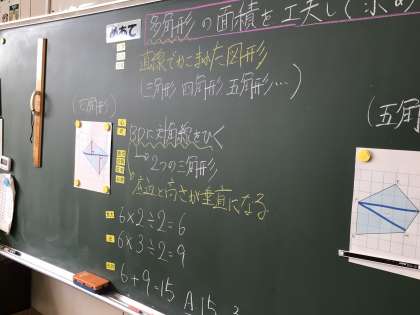 めあて 多角形の面積を工夫して求め
直線でかこまれた図形
(三角形 四角形 五角形…)
(四角形)
BDに対角線をひく
→2つの三角形
底辺と高さが垂直になる
6×2÷2=6
6×3÷2=9
6+9=15 A 15
(五角